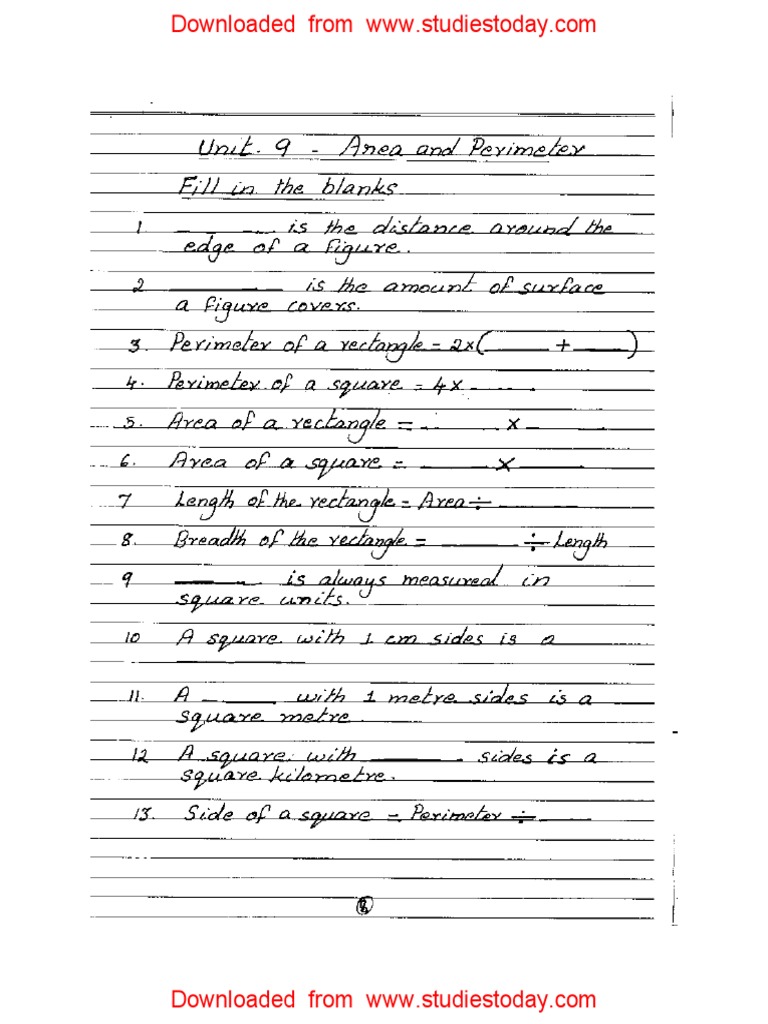 Downloaded from www.studiestoday.com
Unit. 9 - Area and Perimeter
Fill in the blanks
1 _ _ _ _ is the distance around the
edge of a figure.
2 ________ is the amount of surface
a figure covers.
3. Perimeter of a rectangle = 2x(____ + ____)
4. Perimeter of a square = 4x ____.
5. Area of a rectangle = ____ x ____
6. Area of a square = ____ x ____
7 Length of the rectangle = Area ÷ ____
8. Breadth of the rectangle = ____ ÷ Length
9 ____ is always measured in
square units.
10 A square with 1 cm sides is a
____
11. A ____ with 1 metre sides is a
square metre.
12 A square with ____ sides is a
square kilometre.
13. Side of a square = Perimeter ÷ ____
8
Downloaded from www.studiestoday.com